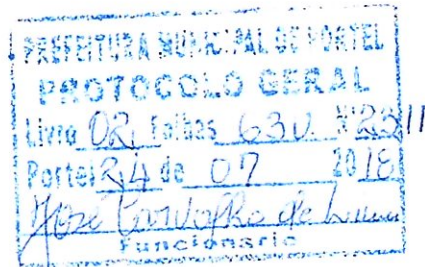 PREFEITURA MUNICIPAL DE PORTEL
PROTOCOLO GERAL
Livro 02, Folhas 63v. Nº 2311
Portel 24 de 07 2018
José Carvalho de
Funcionario